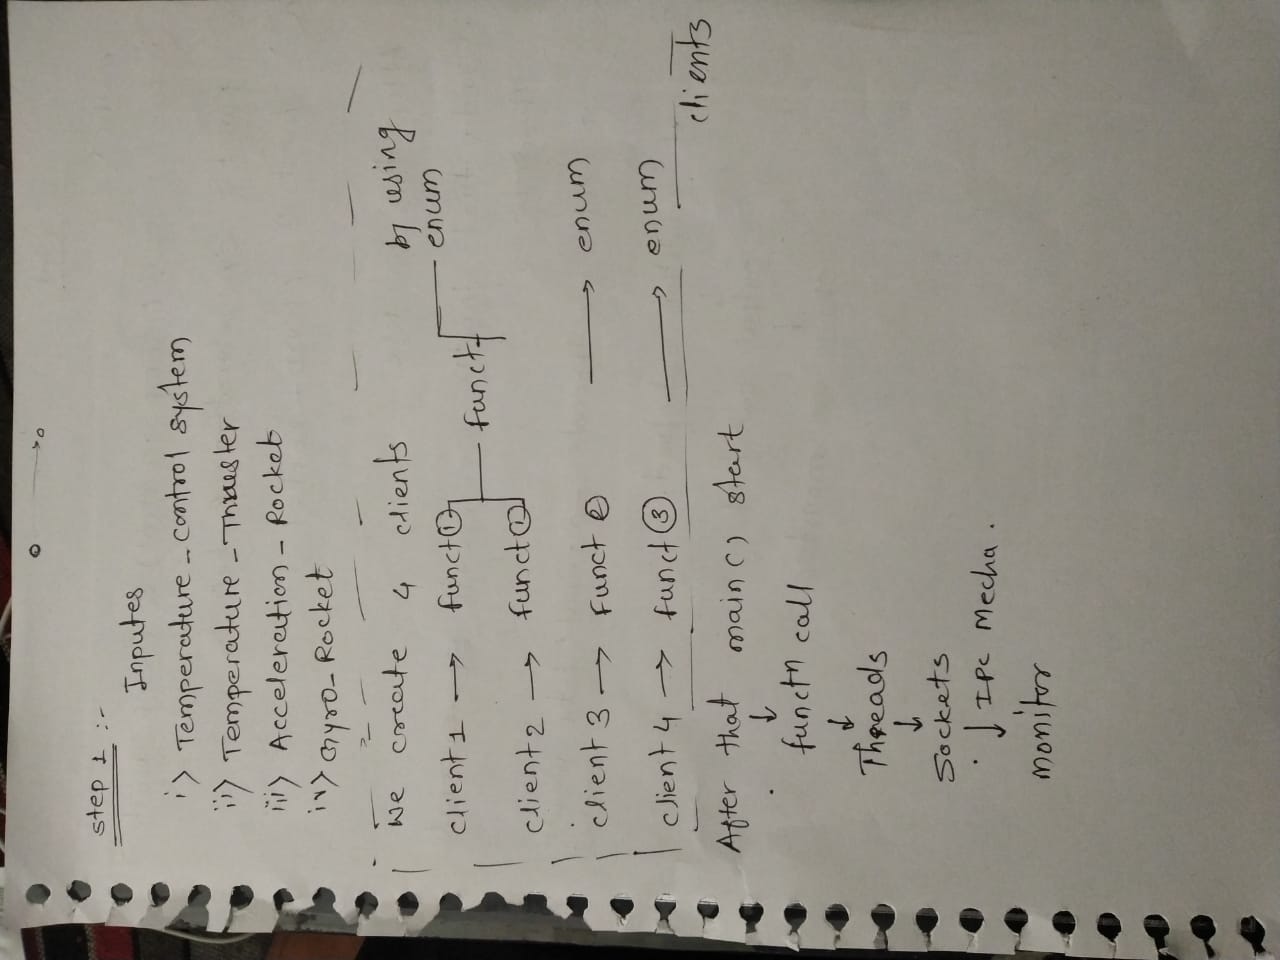 step 1 :-
Inputes
i> Temperature_control system
ii> Temperature_Thruster
iii> Acceleration_Rocket
iv> Gyro_Rocket
we create 4 clients by using enum
client 1 → funct① funct
client 2 → funct①
client 3 → funct ② → enum
client 4 → funct ③ → enum
clients
After that main() start
↓
functn call
↓
Threads
↓
Sockets
↓ IPC Mecha.
monitor